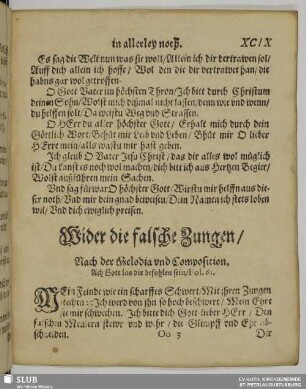 in allerley noth. XCIX
Es sag die Welt nun was sie woll / Allein ich dir vertrawen sol /
Auff dich allein ich hoffe / Wol den die dir vertrawet han / die
habns gar wol getroffen.
O Gott Vater im höchsten Thron / Ich bitt durch Christum
deinen Sohn / Wolst mich dißmal nicht lassen / denn wie vnd wenn /
du helffen solt / Da weistu Weg vnd Strassen.
O HErr du aller höchster Gott / Erhalt mich durch dein
Göttlich Wort / Behüt mir Leib vnd Leben / Bhüt mir O lieber
HErre mein / alls was du mir hast geben.
Ich gleub O Vater Jesu Christ / das dir alles wol müglich
ist / Du kanst es noch wol machen / dich bitt ich aus Hertzen Begier /
Wolst außführen mein Sachen.
Vnd sag fürwar O höchster Gott / Wirstu mir helffn aus die-
ser noth / Vnd mir dein gnad beweisen / Dein Namen ich stets loben
wil / Vnd dich ewiglich preisen.
Wider die falsche Zungen /
Nach der Melodia vnd Composition.
Ach Gott las dir befohlen sein / Fol. 61.
MEin Feinde wie ein scharffes Schwert Mit ihren Zungen
stechen :: Ich werd von ihn so hoch beschwert / Mein Ehre
sie mir schwechen. Ich bitte dich Gott lieber HErr / Den
falschen Meulern stewr vnd wehr / die Glimpff vnd Ehr ab-
schneiden.
Oo 3 Dir
SLUB
Wir führen Wissen.
EV.-LUTH. KIRCHGEMEINDE
ST. BARTHOLOMÄUS